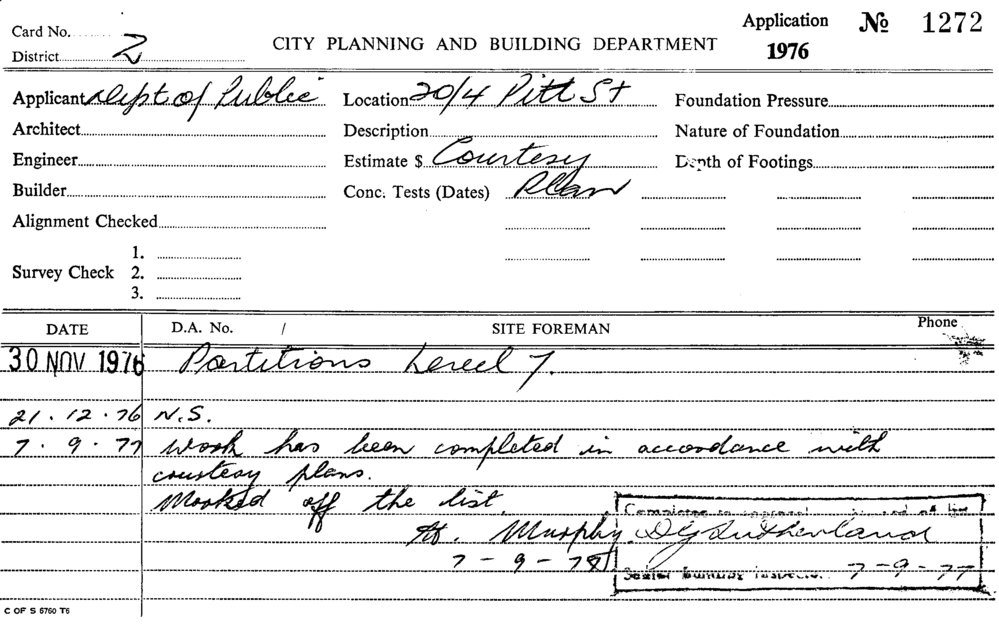 Application No 1272
Card No.
CITY PLANNING AND BUILDING DEPARTMENT
1976
District 2
Applicant Dept of Public
Location 20/4 Pitt St
Foundation Pressure
Architect
Description
Nature of Foundation
Engineer
Estimate $ Courtesy
Depth of Footings
Builder
Conc. Tests (Dates) Plan
Alignment Checked
1.
Survey Check 2.
3.
DATE D.A. No. / SITE FOREMAN Phone
30 NOV 1976 Partitions Level 7.
21.12.76 N.S.
7.9.77 Work has been completed in accordance with
courtesy plans.
Marked off the list.
Murphy.
7-9-77
DG Sutherland
Senior Building Inspector 7-9-77
C OF S 6760 T6